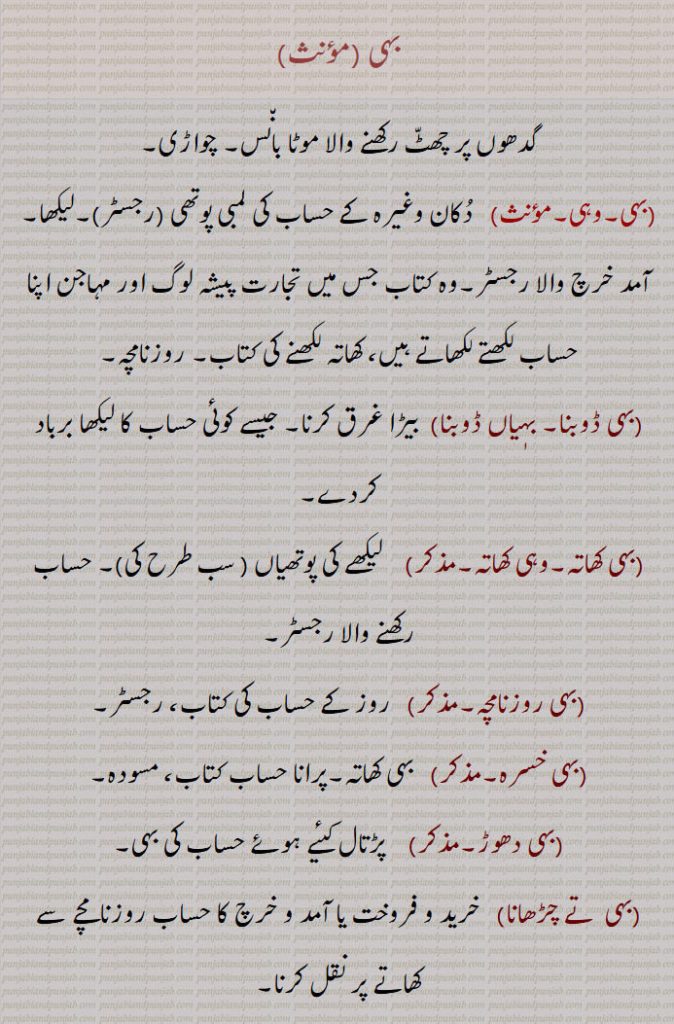 بہی (مؤنث)
گدھوں پر چھٹّ رکھنے والا موٹا بانّس۔ چواڑی۔
(بہی۔وہی۔مؤنث) دُکان وغیرہ کے حساب کی لمبی پوتھی (رجسٹر)۔لیکھا۔
آمد خرچ والا رجسٹر۔وہ کتاب جس میں تجارت پیشہ لوگ اور مہاجن اپنا
حساب لکھتے لکھاتے ہیں، کھاتہ لکھنے کی کتاب۔ روزنامچہ۔
(بہی ڈوبنا۔ بہیاں ڈوبنا) بیڑا غرق کرنا۔ جیسے کوئی حساب کا لیکھا برباد
کردے۔
(بہی کھاتہ۔وہی کھاتہ۔مذکر) لیکھے کی پوتھیاں ( سب طرح کی)۔ حساب
رکھنے والا رجسٹر۔
(بہی روزنامچہ۔مذکر) روز کے حساب کی کتاب، رجسٹر۔
(بہی خسرہ۔مذکر) بہی کھاتہ۔پرانا حساب کتاب، مسودہ۔
(بہی دھوڑ۔مذکر) پڑتال کئیے ہوئے حساب کی بہی۔
(بہی تے چڑھانا) خرید و فروخت یا آمد و خرچ کا حساب روزنامچے سے
کھاتے پر نقل کرنا۔